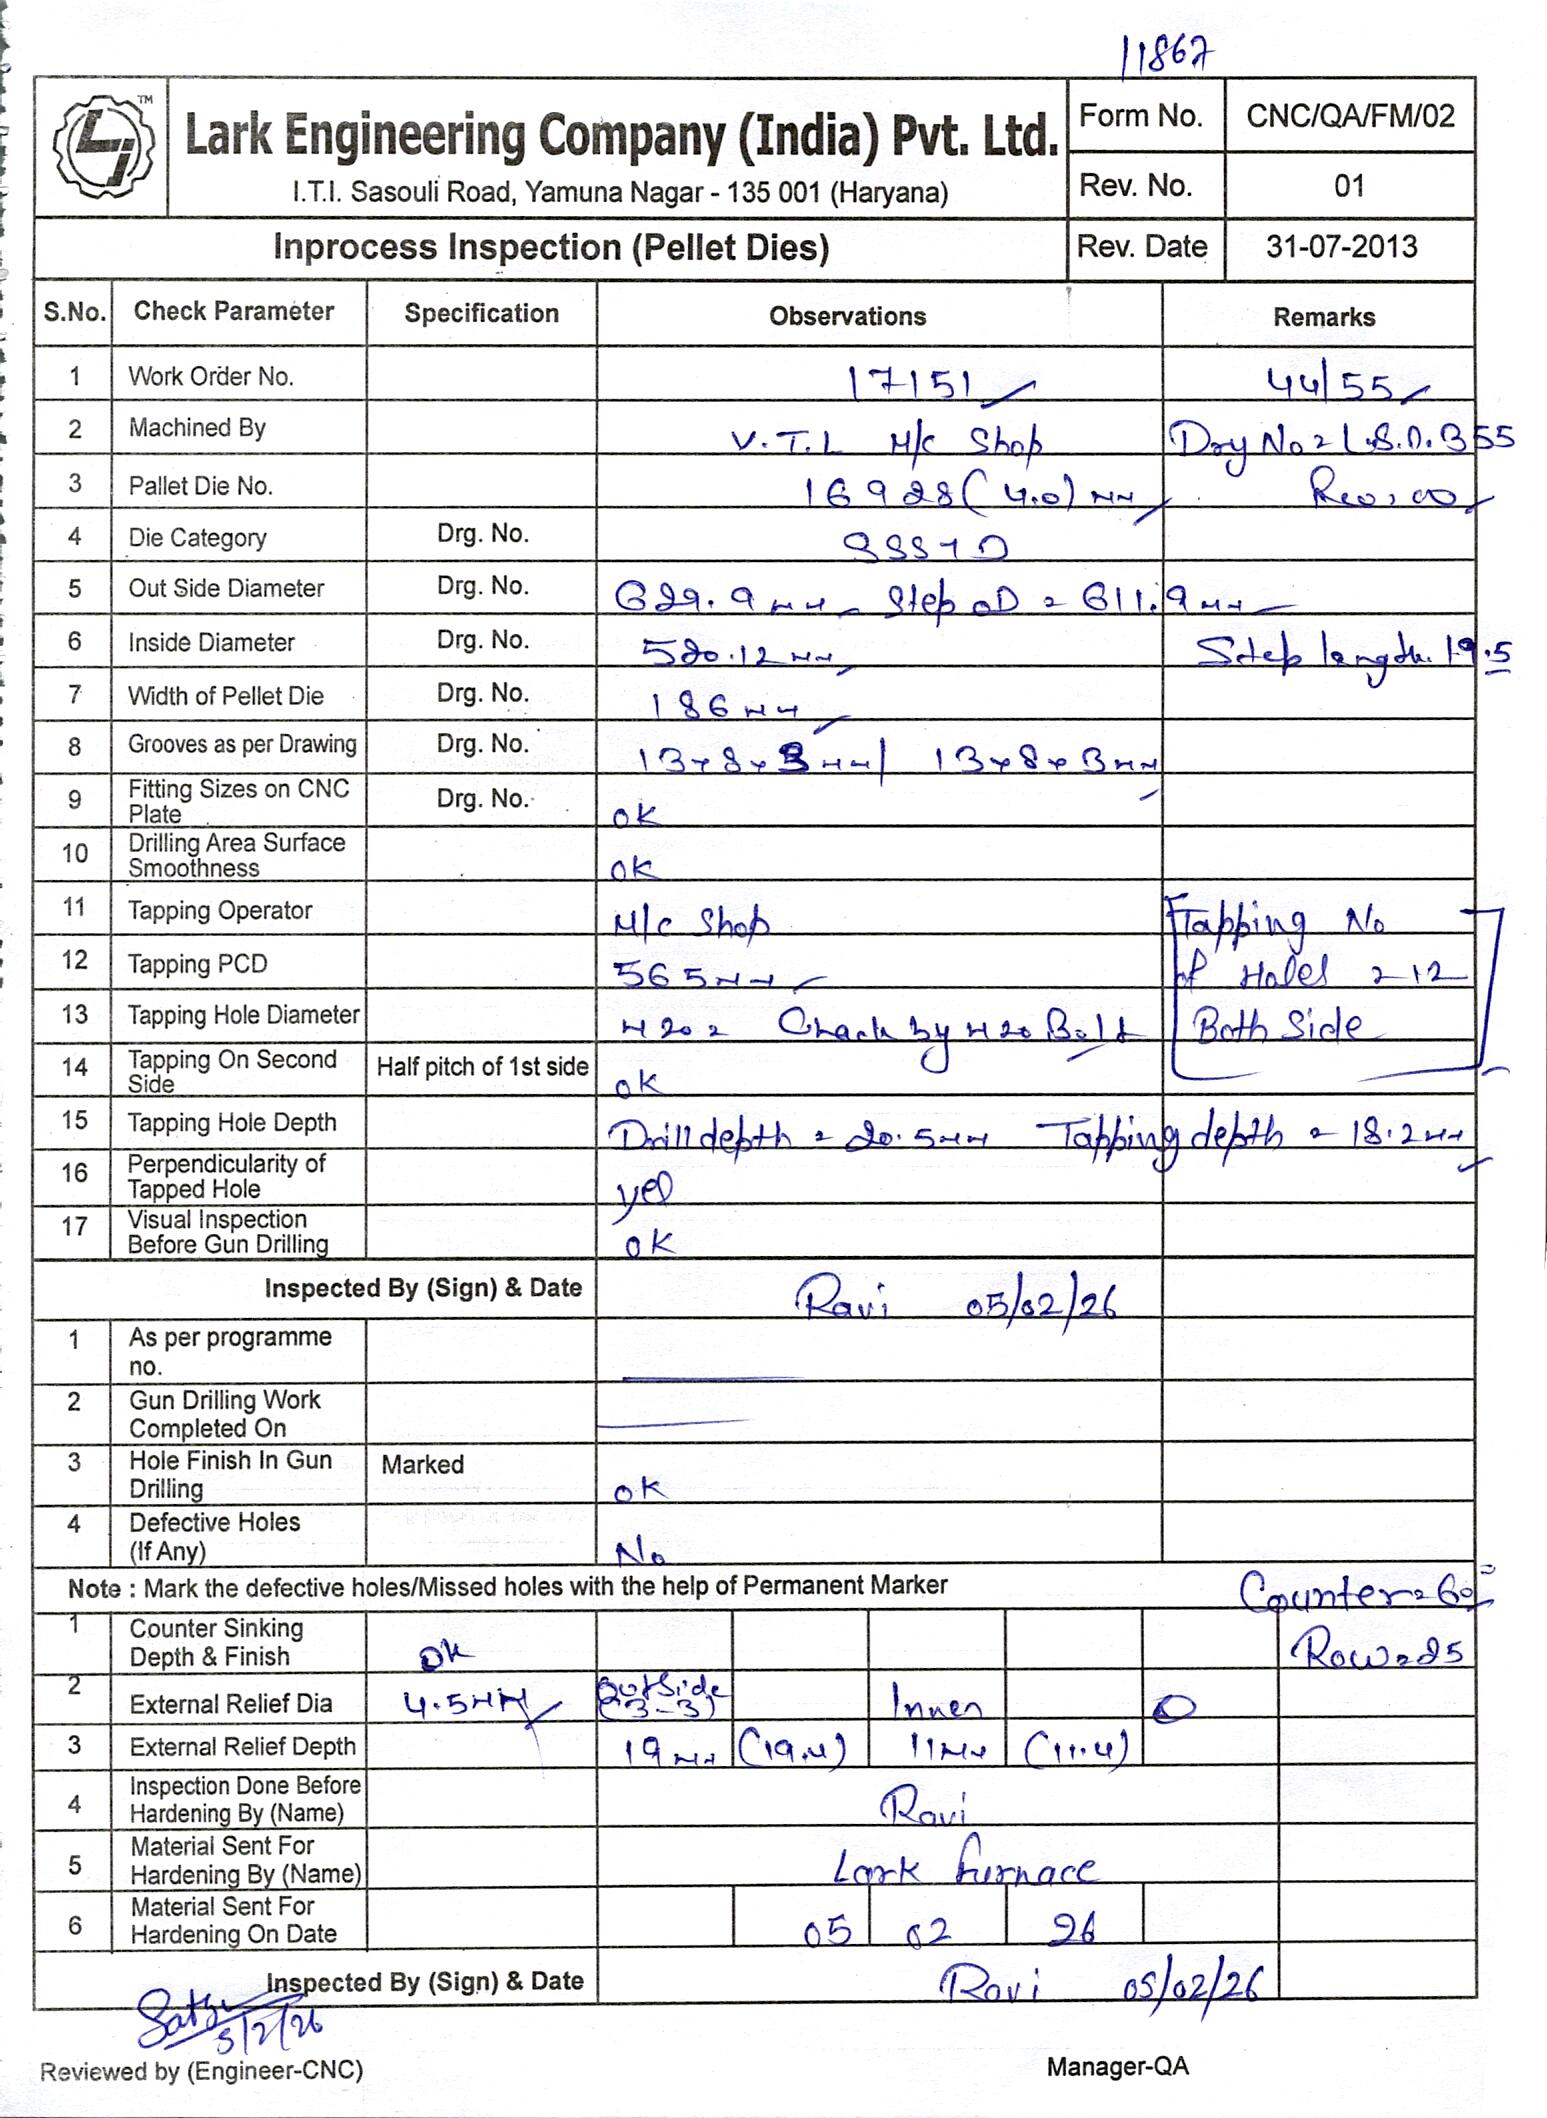 11867
LI TM
Lark Engineering Company (India) Pvt. Ltd.
I.T.I. Sasouli Road, Yamuna Nagar - 135 001 (Haryana)
Form No. CNC/QA/FM/02
Rev. No. 01
Inprocess Inspection (Pellet Dies) Rev. Date 31-07-2013
S.No. Check Parameter Specification Observations Remarks
1 Work Order No. 17151 44/55
2 Machined By V.T.L M/c Shop
3 Pallet Die No. 16928 (4.0) mm Rev. 00
4 Die Category Drg. No.
5 Out Side Diameter Drg. No. 629.9 mm Step OD = 611.9 mm
6 Inside Diameter Drg. No. 520.12 mm Step length. 19.5
7 Width of Pellet Die Drg. No. 186 mm
8 Grooves as per Drawing Drg. No. 13x8x3 mm / 13x8x3 mm
9 Fitting Sizes on CNC Plate Drg. No. ok
10 Drilling Area Surface Smoothness ok
11 Tapping Operator M/c Shop Tapping No
12 Tapping PCD 565 mm of Holes = 12
13 Tapping Hole Diameter M20 = Check by M20 Bolt Both Side
14 Tapping On Second Side Half pitch of 1st side ok
15 Tapping Hole Depth Drill depth = 20.5 mm Tapping depth = 18.2 mm
16 Perpendicularity of Tapped Hole yes
17 Visual Inspection Before Gun Drilling ok
Inspected By (Sign) & Date Ravi 05/02/26
1 As per programme no.
2 Gun Drilling Work Completed On
3 Hole Finish In Gun Drilling Marked ok
4 Defective Holes (If Any) No
Note : Mark the defective holes/Missed holes with the help of Permanent Marker Counter = 60
1 Counter Sinking Depth & Finish ok Row = 25
2 External Relief Dia 4.5 mm Outside (3-3) Inner 0
3 External Relief Depth 19 mm (19.4) 11 mm (11.4)
4 Inspection Done Before Hardening By (Name) Ravi
5 Material Sent For Hardening By (Name) Lark furnace
6 Material Sent For Hardening On Date 05 02 26
Inspected By (Sign) & Date Ravi 05/02/26
5/2/26
Reviewed by (Engineer-CNC) Manager-QA